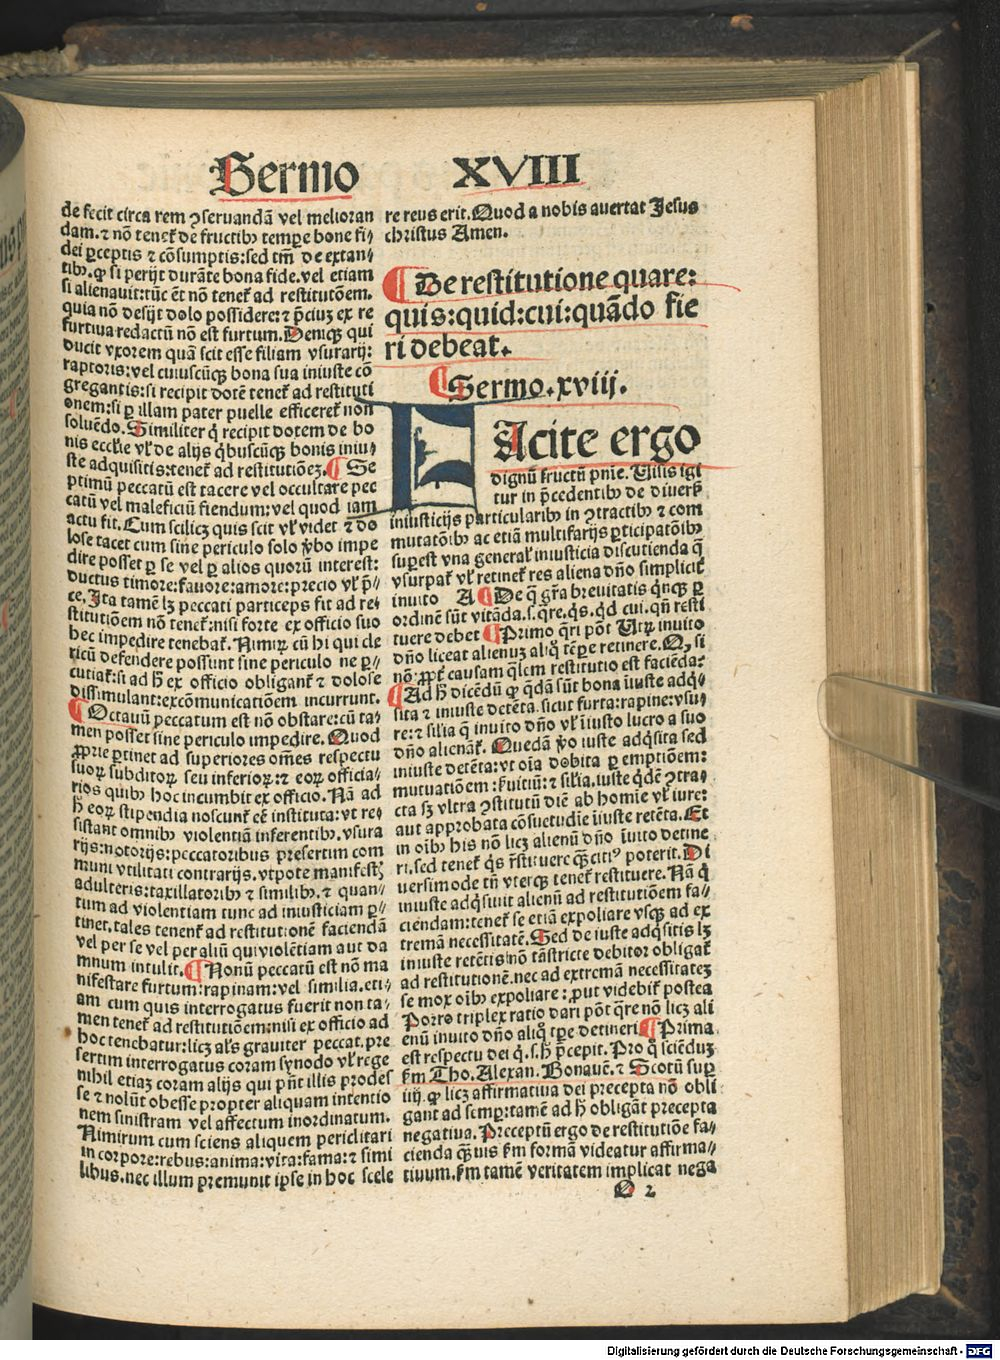 Sermo XVIII
de fecit circa rem ꝯseruandā vel melioran
dam. ⁊ nō tenet᷑ de fructibꝰ tempore bone fi⸗
dei ꝑceptis ⁊ cōsumptis: sed tm̄ de extan⸗
tibꝰ. ꝙ si perijt durāte bona fide. vel etiam
si alienauit: tūc ēt nō tenet᷑ ad restitutōem.
quia nō desijt dolo possidere: ⁊ p̄cius ex re
furtiua redactū nō est furtum. Deniqꝫ qui
ducit vxorem quā scit esse filiam vsurarij:
raptoris: vel cuiuscūqꝫ bona sua iniuste cō
gregantis: si recipit dotē tenet᷑ ad restituti
onem: si ꝑ illam pater puelle efficeret᷑ non
soluēdo. Similiter q̇ recipit dotem de bo
nis eccl̄ie vl̓ de alijs q̇buscūqꝫ bonis iniu⸗
ste adquisitis: tenet᷑ ad restitutiōeꝫ. ¶ Se
ptimū peccatū est tacere vel occultare pec
catū vel maleficiū fiendum: vel quod iam
actu fit. Cum scilicꝫ quis scit vl̓ videt ⁊ do
lose tacet cum sine periculo solo v̄bo impe
dire posset ꝑ se vel ꝑ alios quorū interest:
ductus timore: fauore: amore: precio vl̓ p̄⸗
ce. Ita tamē lꝫ peccati particeps fit ad re⸗
stitutiōem nō tenet᷑: nisi forte ex officio suo
hec impedire tenebat᷑. Nimiꝝ cū hi qui cle
ricū defendere possunt sine periculo ne ꝑ⸗
cutiat᷑: si ad h̄ ex officio obligant᷑ ⁊ dolose
dissimulant: excōmunicatiōem incurrunt.
¶ Octauū peccatum est nō obstare: cū ta⸗
men posset sine periculo impedire. Quod
ꝓprie ꝑtinet ad superiores om̄es respectu
suoꝝ subditoꝝ seu inferioꝝ: ⁊ eoꝝ officia⸗
rios quibꝰ hoc incumbit ex officio. Nā ad
h̄ eoꝝ stipendia noscunt᷑ eē instituta: vt re⸗
sistant omnibꝰ violentiā inferentibꝰ. vsura
rijs: notorijs: peccatoribus presertim com
muni vtilitati contrarijs. vtpote manifestꝭ
adulteris: taxillatoribꝰ ⁊ similibꝰ. ⁊ quan⸗
tum ad violentiam tunc ad iniusticiam ꝑ⸗
tinet. tales tenent᷑ ad restitutionē faciendā
vel per se vel per aliū qui violētiam aut da
mnum intulit. ¶ Nonū peccatū est nō ma
nifestare furtum: rapinam: vel similia. eti⸗
am cum quis interrogatus fuerit non ta⸗
men tenet᷑ ad restitutiōem: nisi ex officio ad
hoc tenebatur: licꝫ al̓s grauiter peccat. pre
sertim interrogatus coram synodo vl̓ rege
nihil etiaꝫ coram alijs qui pn̄t illis prodes
se ⁊ nolūt obesse propter aliquam intentio
nem sinistram vel affectum inordinatum.
Nimirum cum sciens aliquem periclitari
in corpore: rebus: anima: vita: fama: ⁊ simi
libus. nec illum premunit ipse in hoc scele
re reus erit. Quod a nobis auertat Jesus
christus Amen.
¶ De restitutione quare:
quis: quid: cui: quādo fie
ri debeat.
¶ Sermo. xviij.
FAcite ergo
dignū fructū pn̄ie. Uisis igi
tur in p̄cedentibꝰ de diuers̄
iniusticijs particularibꝰ in ꝯtractibꝰ ⁊ com
mutatōibꝰ ac etiā multifarijs ꝑticipatōibꝰ
superest vna general̓ iniusticia discutienda q̄
vsurpat᷑ vl̓ retinet᷑ res aliena dn̄o simplicit᷑
inuito A ¶ De q̄ gr̄a breuitatis q̇nqꝫ ꝑ
ordinē sūt vitāda. s. q̄re. q̇s. qd̓ cui. qn̄ resti
tuere debet ¶ Primo q̄ri pōt Utꝝ inuito
dn̄o liceat alienuꝫ aliq̄ tēpe retinere. Q, si
nō: ꝓpt᷑ causam q̄lem restitutio est faciēda?
¶ Ad h̄ dicēdū ꝙ q̄dā sūt bona īiuste adq̇⸗
sita ⁊ iniuste detēta. sicut furta: rapine: vsu⸗
re: ⁊ sil̓ia q̄ inuito dn̄o vl̓ īiusto lucro a suo
dn̄o alienāt᷑. Quedā v̄o iuste adq̇sita sed
iniuste detēta: vt oīa debita ꝑ emptiōem:
mutuatiōem: s̓uitiū: ⁊ sil̓ia. iuste q̇dē ꝯtra⸗
cta sꝫ vltra ꝯstitutū diē ab homīe vl̓ iure:
aut approbata cōsuetudīe īiuste retēta. Et
in oībꝰ his nō licꝫ alienū dn̄o īuito detine
ri. sed tenet᷑ q̇s r̄stituere qꝫciti⁹ poterit. Di
uersimode tn̄ vterqꝫ tenet᷑ restituere. Nā q̇
iniuste adq̇siuit alienū ad restitutiōem fa⸗
ciendam: tenet᷑ se etiā expoliare vsqꝫ ad ex
tremā necessitatē. Sed de iuste adq̇sitis lꝫ
iniuste retētis nō tā stricte debitor obligat᷑
ad restitutionē. nec ad extremā necessitateꝫ
se mox oībꝰ expoliare: ꝓut videbit᷑ postea
Porro triplex ratio dari pōt q̄re nō licꝫ ali
enū inuito dn̄o aliq̄ tꝑe detineri ¶ Prima
est respectu dei q̇. s. h̄ p̄cepit. Pro q̄ sciēduꝫ
s̄m Tho. Alexan. Bonauē. ⁊ Scotū suꝑ
iiij. ꝙ licꝫ affirmatiua dei precepta nō obli
gant ad semꝑ: tamē ad h̄ obligāt precepta
negatiua. Preceptū ergo de restitutiōe fa⸗
cienda qꝫuis s̄m formā videatur affirma⸗
tiuum. s̄m tamē veritatem implicat nega
O 2
Digitalisierung gefördert durch die Deutsche Forschungsgemeinschaft - DFG